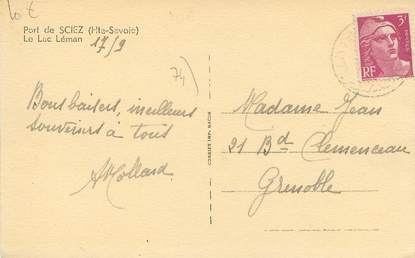 10 €
Port de SCIEZ (Hte-Savoie)
Le Lac Léman
17/9
74)
Bons baisers, meilleurs
souvenirs à tous
AMollard
Madame Jean
21 Bd Clemenceau
Grenoble
3F
RF